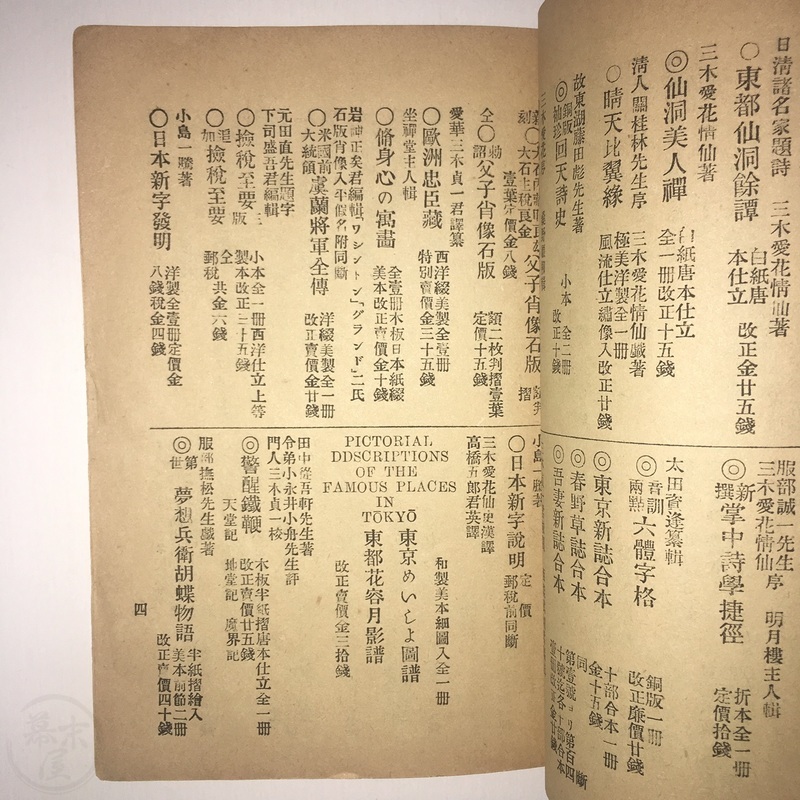 日清諸名家題詩 三木愛花情仙著
○東都仙洞餘譚 白紙唐本仕立 改正金廿五錢
三木愛花情仙著
◎仙洞美人禪 白紙唐本仕立 全一册改正十五錢
淸人關桂林先生序 三木愛花情仙戲著
○晴天比翼緣 極美洋製全一册 風流仕立繡像入改正廿錢
故東湖藤田彪先生著
◎銅版袖珍回天詩史 小本全二册 改正十錢
服部誠一先生序 明月樓主人輯
三木愛花情仙
◎新撰掌中詩學捷徑 折本全一册 定價拾錢
太田資逢纂輯
◎音訓兩點六體字格 銅版一册 改正廉價廿錢
◎東京新誌合本 十部合本一册 金十五錢
◎春野草誌合本 同
◎吾妻新誌合本
父子肖像石版
壹葉定價金八錢
仝 父子肖像石版 額二枚判摺壹葉 定價十五錢
愛華三木貞一君譯纂
○歐洲忠臣藏 西洋綴美製全壹册 特別賣價金三十五錢
坐禪堂主人輯
○脩身心の寓畵 全壹册木板日本紙綴 美本改正賣價金十錢
岩神正矣君編輯「ワシントン」「グランド」二氏石版肖像入平假名附同斷
○米國前大統領虞蘭將軍全傳 洋綴美製全一册 改正賣價金廿錢
元田直先生題字
下司盛吾君編輯
○撿稅至要 小本全一册西洋仕立上等 製本改正三十五錢
○撿稅至要 仝 郵稅共金六錢
小島一騰著
○日本新字發明 洋製全壹册定價金八錢稅金四錢
小島一騰著
○日本新字說明 定價郵稅前同斷
三木愛花仙史漢譯
高橋五郎君英譯
PICTORIAL
DDSCRIPTIONS
OF THE
FAMOUS PLACES
IN
TŌKYŌ
東京めいしよ圖譜
東都花容月影譜
和製美本細圖入全一册
改正賣價金三拾錢
田中從吾軒先生著
令弟小永井小舟先生評
門人三木貞一校
◎警醒鐵鞭 木板半紙摺唐本仕立全一册 改正賣價廿五錢
天堂記 地堂記 魔界記
服部撫松先生戲著
◎第世夢想兵衛胡蝶物語 半紙摺繪入美本前節二册 改正賣價四十錢
四